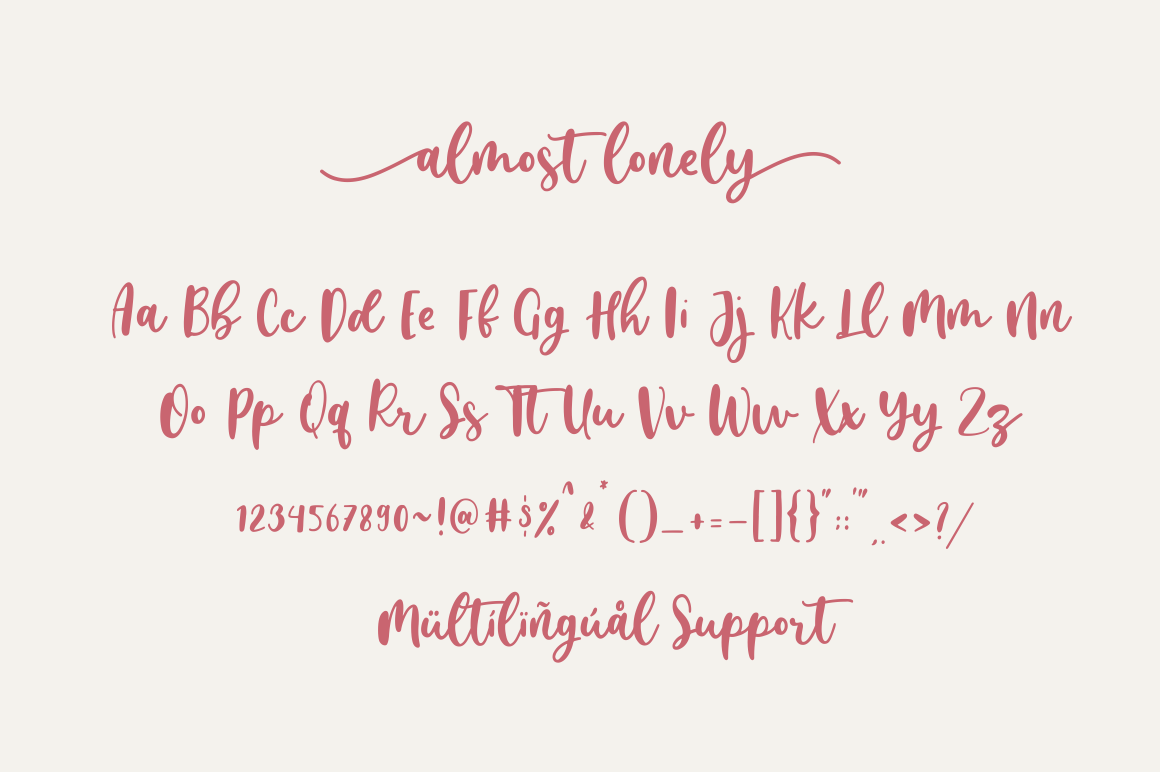 almost lonely
Aa Bb Cc Dd Ee Ff Gg Hh Ii Jj Kk Ll Mm Nn
Oo Pp Qq Rr Ss Tt Uu Vv Ww Xx Yy Zz
1234567890~!@#$%^&*()_+=-[]{}":;'",.<>?/
Mültílïñgúål Support